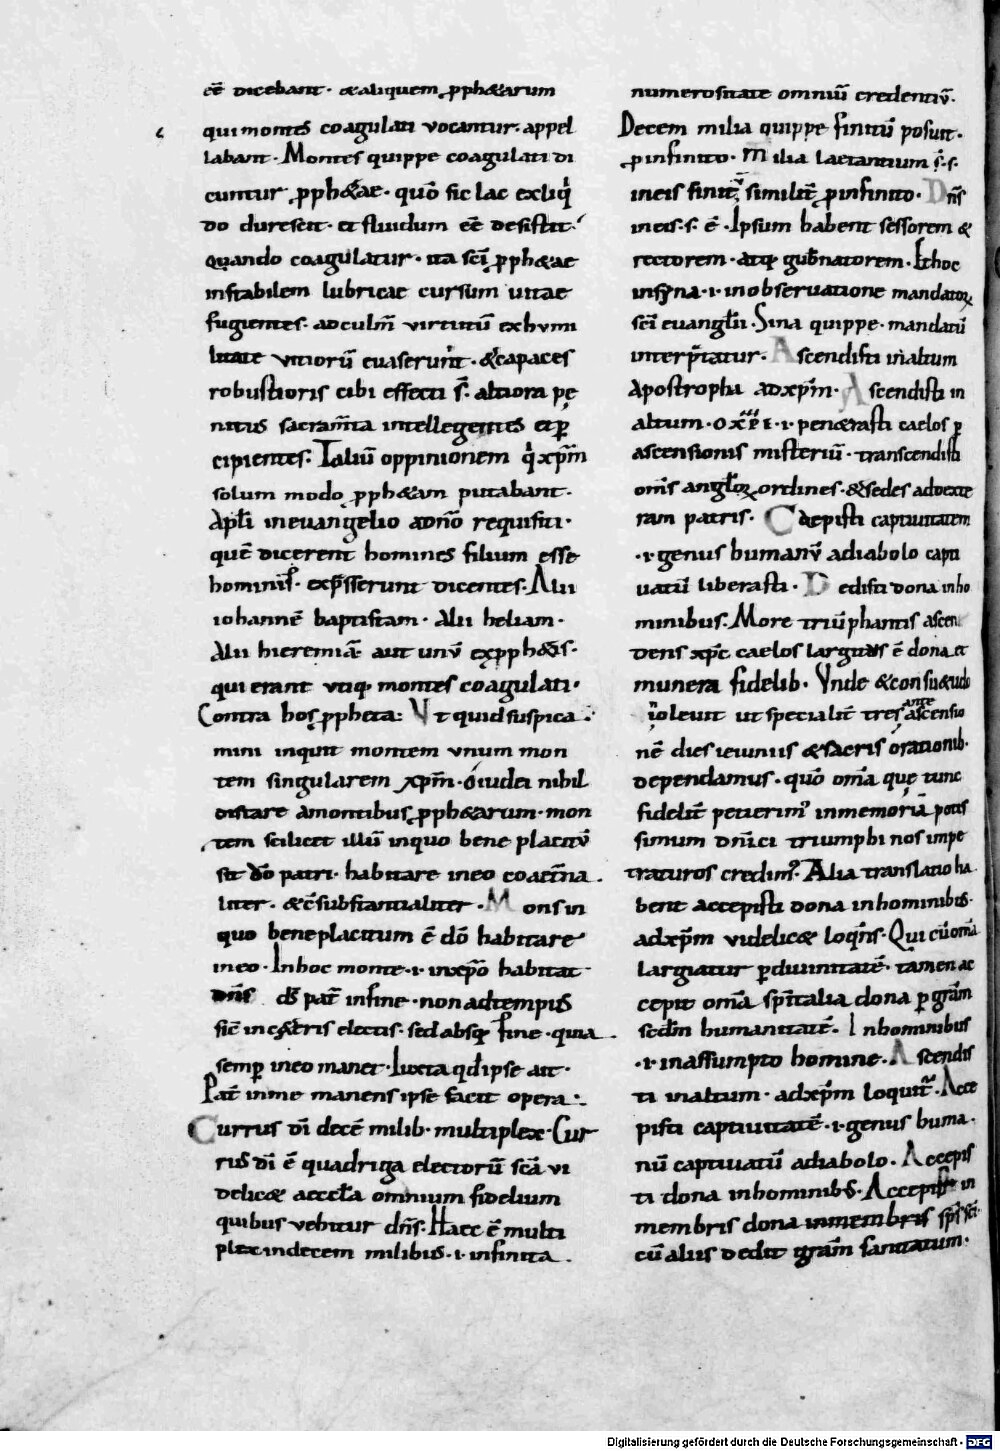 eē dicebant · & aliquem ꝓph&arum
qui montes coagulati vocantur. appel
labant · Montes quippe coagulati di
cuntur ꝓph&ae · quō sic lac ex liq
do durescit · et fluidum eē desistit ·
quando coagulatur · ita scī ꝓph&ae
instabilem lubricae cursum vitae
fugientes · ad culm̄ virtutū ex humi
litate vitiorū evaserunt · & capaces
robustioris cibi effecti s̄ · altiora pe
nitus sacram̄ta intellegentes et ꝑ
cipientes · Taliū oppinionem qͥ xp̄m
solum modo ꝓph&am putabant ·
Apl̄i in evangelio a dn̄o requisiti ·
quē dicerent homines filium esse
hominis · exp̄sserunt dicentes · Alii
iohannē baptistam · Alii heliam ·
Alii hieremiā · aut unū ex ꝓph&is ·
qui erant utiq · montes coagulati ·
Contra hos ꝓpheta : Ut quid suspica
mini inquit montem unum mon
tem singularem xp̄m · o iudei nihil
distare a montibus ꝓph&arum · mon
tem scilicet illū in quo bene placitū
sit dō patri · habitare in eo coaet̄na
liter · & c̄substantialiter · Mons in
quo beneplacitum ē dō habitare
in eo · In hoc monte · i · in xp̄o habitat
dn̄s ds̄ pat̄ in fine · non ad tempus
sic̄ in c&eris electis · sed absq fine · quia
semp̄ in eo manet · Iuxta qd̄ ipse ait ·
Pat̄ in me manens ipse facit opera :
Currus dī decē milib · multiplex · Cur
rus dī ē quadriga electorū scā vi
delic& accl̄a omnium fidelium
quibus vehitur dn̄s · Haec ē multi
plex in decem milibus · i · infinita
numerositate omniū credentiū ·
Decem milia quippe finitū posuit ·
ꝓ infinito · Milia laetantium s̄ · s ·
in eis finit̄ similit̄ ꝓ infinito · Dn̄s
in eis · s · ē · Ipsum habent sessorem &
rectorem · atq gub̄natorem · Et hoc
in syna · i · in observatione mandatoꝝ
scī evangl̄ii · Sina quippe · mandatū
interp̄tatur · Ascendisti in altum
Apostropha ad xp̄m · Ascendisti in
altum · o xp̄e · i · pen&rasti caelos ꝑ
ascensionis misteriū · transcendisti
om̄s angl̄oꝝ ordines · & sedes ad dexte
ram patris · Caepisti captivitatem
· i · genus humanū a diabolo capti
vatū liberasti · Dedisti dona in ho
minibus · More triūphantis ascen
dens xp̄c caelos largitus ē dona et
munera fidelib · Unde & consu&udo
inolevit ut specialit̄ tres ante ascensio
nē dies ieiuniis & sacris orationib ·
dependamus · quō om̄a quę tunc
fidelit̄ petierim᾽ in memoriā potis
simum dn̄ici triumphi nos impe
traturos credim᾽ · Alia translatio ha
bent accepisti dona in hominibus ·
ad xp̄m videlic& loqn̄s · Qui cū om̄a
largiatur ꝑ divinitatē · tamen ac
cepit om̄a sp̄italia dona ꝑ grām
secdm̄ humanitatē · In hominibus
· i · in assumpto homine · Ascendis
ti in altum · ad xp̄m loquit̄ · Acce
pisti captivitatē · i · genus huma
nū captivatū a diabolo · Accepis
ti dona in hominib; · Accepisti in
membris dona in membris sp̄s scī ·
cū aliis dedit grām sanitatum ·
Digitalisierung gefördert durch die Deutsche Forschungsgemeinschaft - DFG